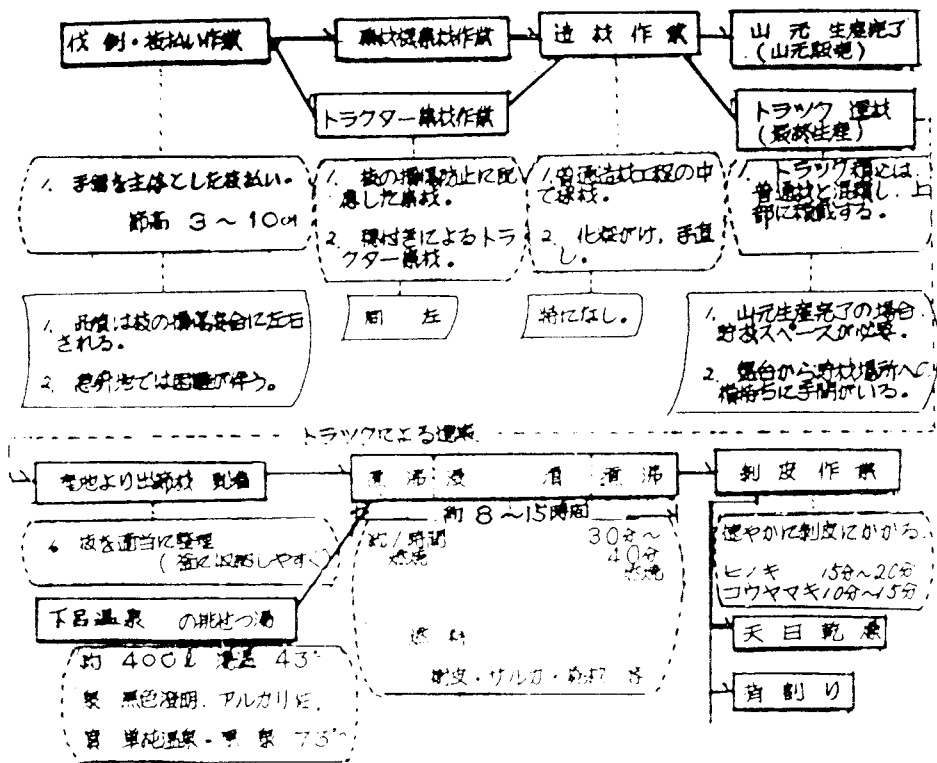 伐倒・枝払い作業
集材機集材作業
造材作業
山元生産完了
(山元販売)
トラクター集材作業
トラック運材
(最終生産)
1. 手鋸を主体とした枝払い。
節高 3〜10cm
1. 枝の損傷防止に配
慮した集材。
2. 枝付きによるトラ
クター集材。
1. 普通造材工程の中
で採材。
2. 化粧がけ、手直
し。
1. トラック積込は、
普通材と混積し、上
部に積載する。
1. 品質は枝の損傷具合に左右
される。
2. 急斜地では困難が伴う。
同左
特になし。
1. 山元生産完了の場合
貯材スペースが必要。
2. 盤台から貯材場所への
横持ちに手間がいる。
トラックによる運搬
産地より出節材 到着
煮沸 浸漬 煮沸
剥皮作業
約8〜15時間
枝を適当に整理
約1時間
燃焼
30分〜
40分
燃焼
速やかに剥皮にかかる
ヒノキ 15分〜20分
コウヤマキ10分〜15分
下呂温泉 の排せつ湯
燃料
樹皮・サルカ・
天日乾燥
背割り
約400ℓ 湯温 43°
泉 無色澄明、アルカリ性、
質 単純温泉・